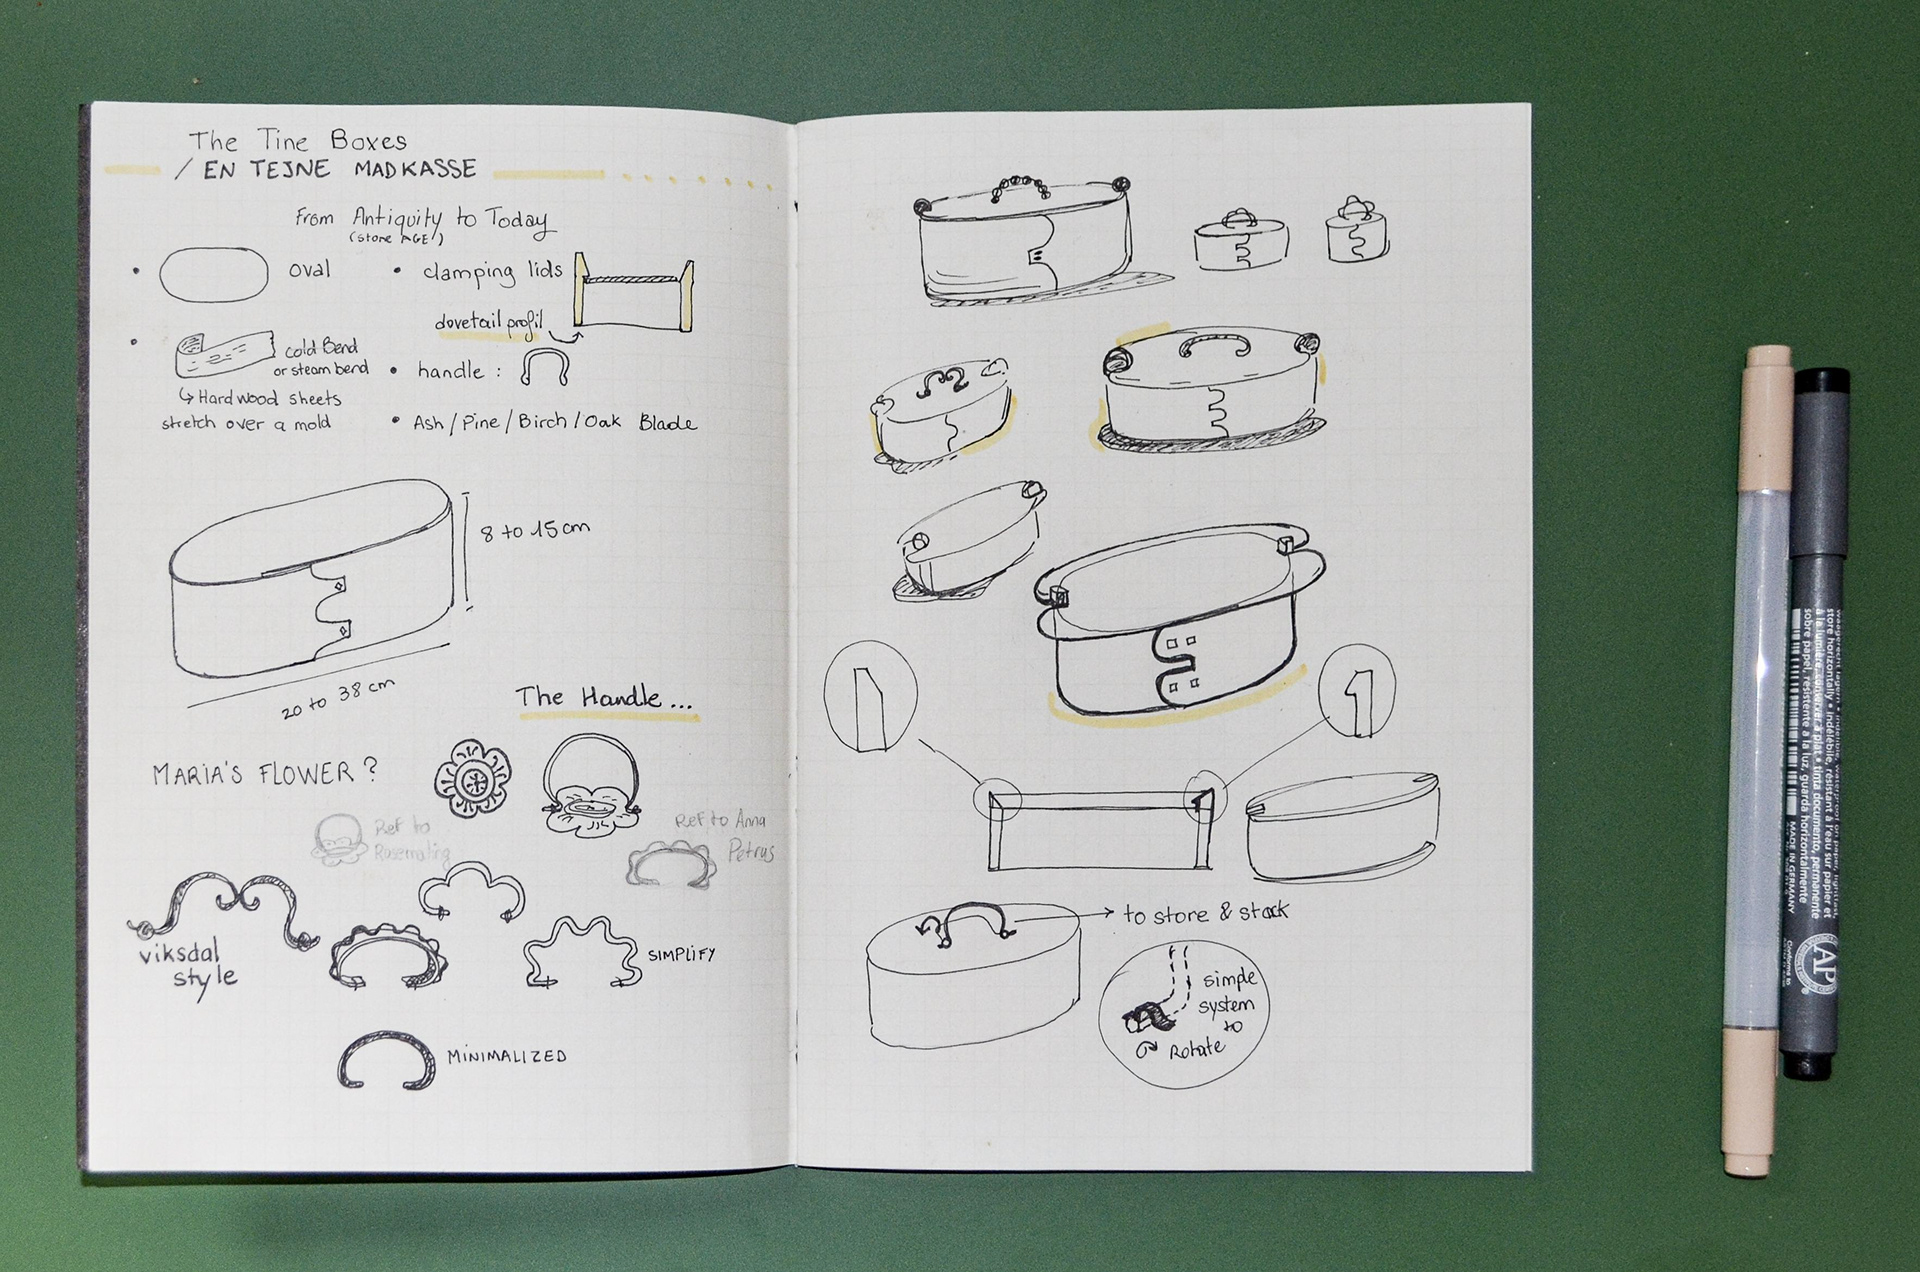 The Tine Boxes
/ EN TEJNE MADKASSE
From Antiquity to Today
(stone AGE!)
oval
clamping lids
dovetail profil
cold Bend
or steam bend
↳ Hardwood sheets
stretch over a mold
handle :
Ash / Pine / Birch / Oak Blade
8 to 15 cm
20 to 38 cm
The Handle ...
MARIA'S FLOWER ?
Ref to
Rosemaling
Ref to Anna
Petrus
viksdal
style
SIMPLIFY
MINIMALIZED
to store & stack
simple
system
to
Rotate
store horizontally • indelible, waterproof on paper, lightfast,
à la lumière, conserver à plat • tinta documento, permanente
sobre papel, resistente a la luz, guarda horizontalmente
MADE IN GERMANY
Conforms to
AP